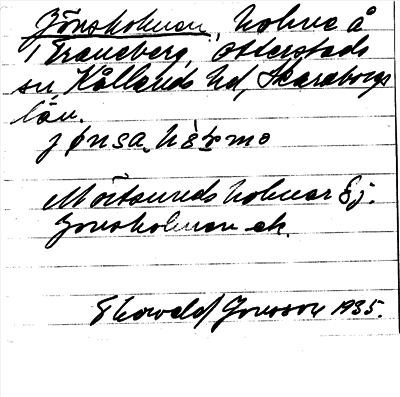 Jönsholmen, holme å
Traneberg, Otterstads
sn, Kållands hd, Skaraborgs
län.
jönsa, hòlmə
Mörtsunds holmar Ej.
Jonsholmen ek.
Ekovald Jonsson 1935.